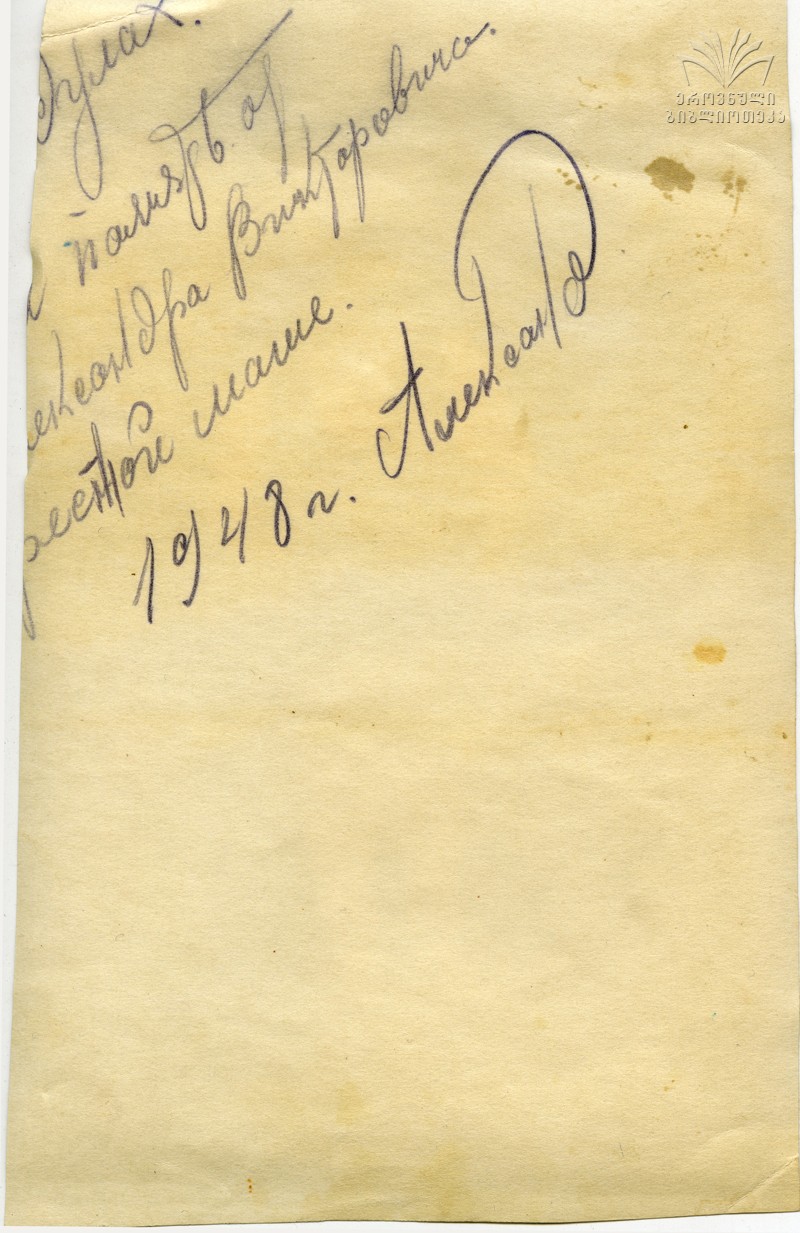 память от
Александра Викторовича.
крестной маме.
1948 г. Александр
ეროვნული
ბიბლიოთეკა